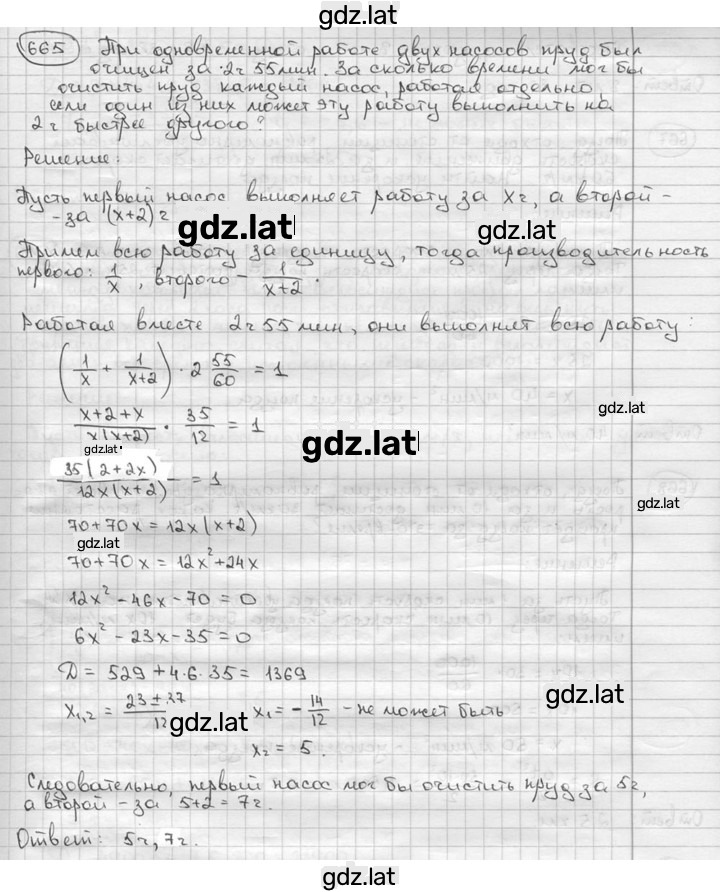 gdz.lat
665 При одновременной работе двух насосов пруд был
очищен за 2ч 55мин. За сколько времени мог бы
очистить пруд каждый насос, работая отдельно,
если один из них может эту работу выполнить на
2 ч быстрее другого?
Решение:
Пусть первый насос выполняет работу за x ч, а второй -
- за (x+2) ч
gdz.lat
gdz.lat
Примем всю работу за единицу, тогда производительность
первого: 1/x , второго - 1/(x+2) .
Работая вместе 2ч 55 мин, они выполнят всю работу:
(1/x + 1/(x+2)) · 2 55/60 = 1
(x+2+x)/(x(x+2)) · 35/12 = 1
gdz.lat
gdz.lat
gdz.lat
35(2+2x)/(12x(x+2)) = 1
gdz.lat
70+70x = 12x(x+2)
gdz.lat
70+70x = 12x²+24x
12x² - 46x - 70 = 0
6x² - 23x - 35 = 0
D = 529 + 4·6·35 = 1369
x₁,₂ = (23 ± 37)/12 x₁ = - 14/12 - не может быть
gdz.lat
gdz.lat
x₂ = 5 .
Следовательно, первый насос мог бы очистить пруд за 5ч,
а второй - за 5+2 = 7ч.
Ответ: 5ч, 7ч.
gdz.lat